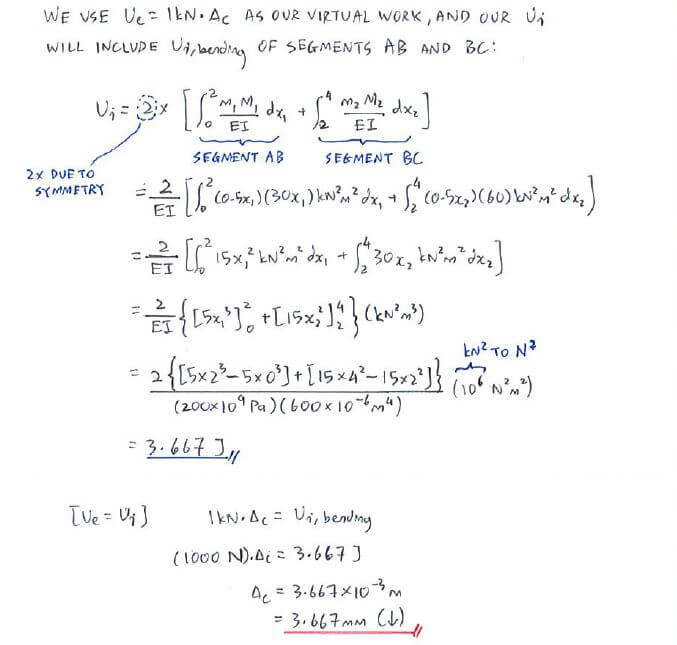 WE USE Ue = 1kN·Δc AS OUR VIRTUAL WORK, AND OUR Ui
WILL INCLUDE Ui,bending OF SEGMENTS AB AND BC:
Ui = 2x [∫₀² m₁M₁/EI dx₁ + ∫₂⁴ m₂M₂/EI dx₂]
SEGMENT AB SEGMENT BC
2x DUE TO
SYMMETRY
= 2/EI [∫₀² (0.5x₁)(30x₁) kN²m² dx₁ + ∫₂⁴ (0.5x₂)(60) kN²m² dx₂]
= 2/EI [∫₀² 15x₁² kN²m² dx₁ + ∫₂⁴ 30x₂ kN²m² dx₂]
= 2/EI {[5x₁³]₀² + [15x₂²]₂⁴} (kN²m³)
kN² TO N²
= 2{[5×2³-5×0³]+[15×4²-15×2²]} (10⁶ N²m²) / (200×10⁹ Pa)(600×10⁻⁶m⁴)
= 3.667 J
[Ue = Ui] 1kN·Δc = Ui,bending
(1000 N)·Δc = 3.667 J
Δc = 3.667×10⁻³ m
= 3.667mm (↓)